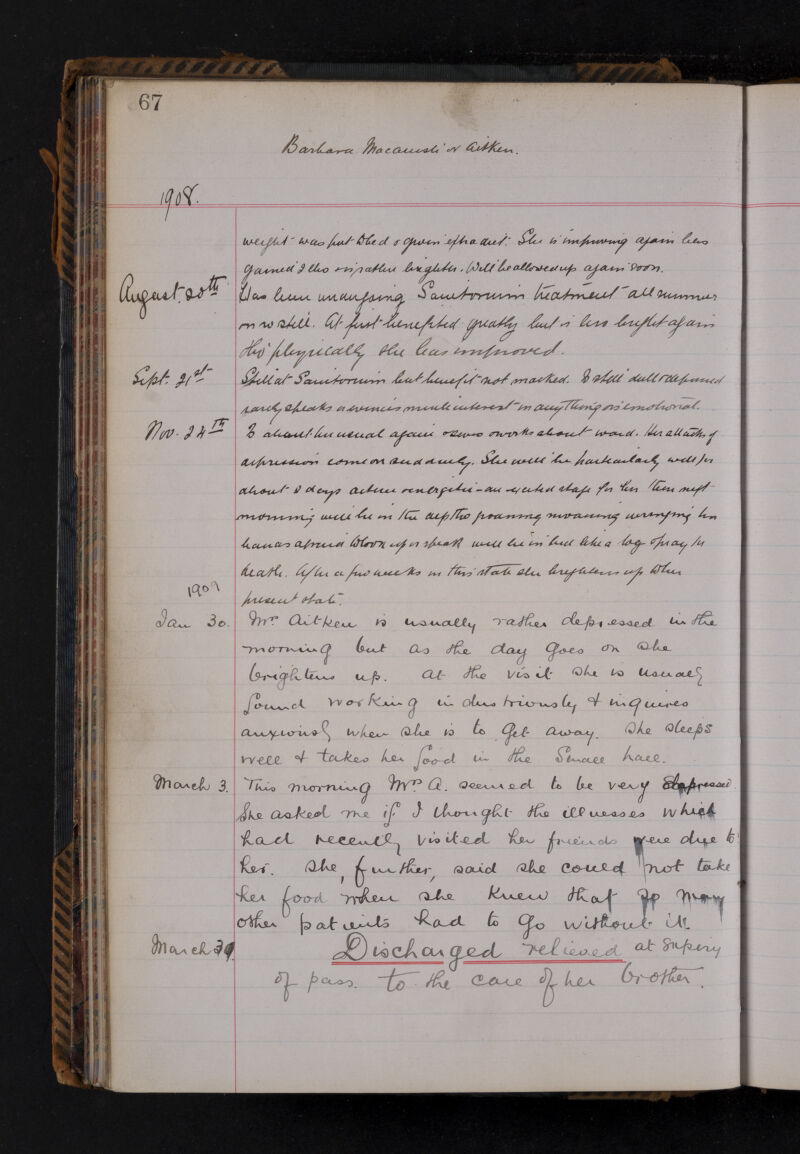 67
Barbara or Aitken.
1908.
weight was put to bed & given extra diet. She is improving again has
gained 2 lbs & is rather brighter. Will be allowed up again soon.
August 20th Has been undergoing Sanitorium treatment all summer
& is so still. At first benefited greatly but is less bright again
tho' physically she has improved.
Sept. 21st Still at Sanitorium but benefit not marked. Is still dull & depressed
rarely speaks or evinces much interest in anything or is emotional.
Nov. 24th Is about her usual again & sews & works about ward. Her attacks of
depression come on suddenly. She will be particularly well for
about 2 days active & energetic - an excited stage for her then next
morning will be in the depths groaning moaning wringing her
hands afraid to look up or speak will lie in bed like a log & pray for
death. After a few weeks in this state she brightens up to her
present state.
1909
Jan 30. Mrs Aitken is usually rather depressed in the
morning but as the day goes on she
brightens up. At the visit she is usually
found working industriously & inquires
anxiously when she is to get away. She sleeps
well & takes her food in the Small hall.
March 3. This morning Mrs A. seemed to be very depressed.
She asked me if I thought the illnesses which
had recently visited her friends were due to
her. She, further, said she could not take
her food when she knew that so many
other patients had to go without it.
March 31. Discharged relieved at expiry
of pass. to the care of her brother.